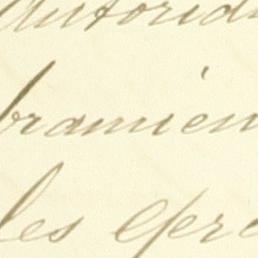 autorida
bramien
les ejerc